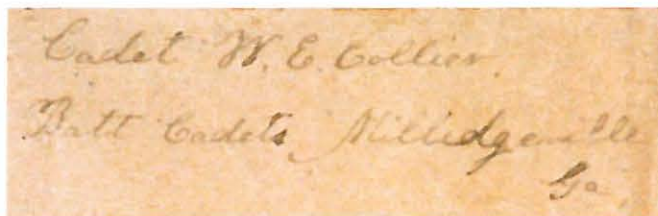 Cadet W. E. Collier.
Batt Cadets Milledgeville
Ga.